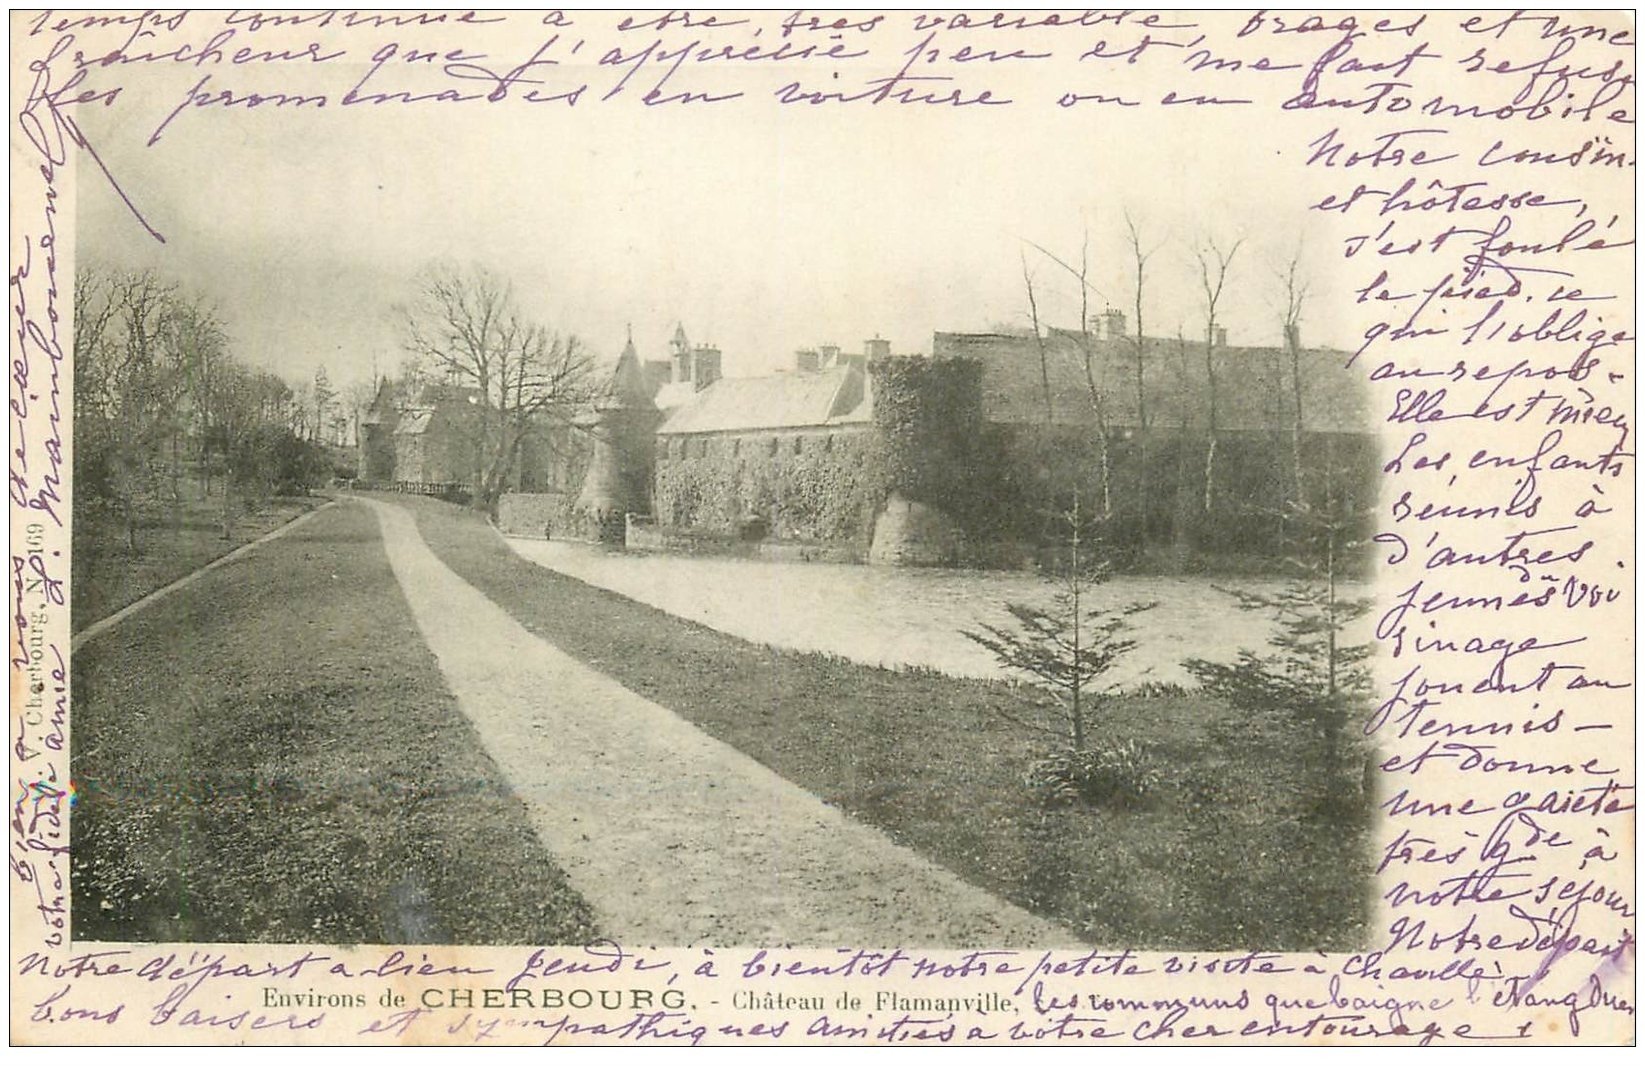 temps continue à être, très variable, orages et une
fraîcheur que j'apprécie peu et me fait refuser
les promenades en voiture ou en automobile
Notre cousin.
et hôtesse,
s'est foulé
le pied, ce
qui l'oblige
au repos -
Elle est mieux
Les enfants
réunis à
d'autres
jeunes du voi
sinage
jouent au
tennis -
et donne
une gaieté
très gde à
notre séjour
Notre départ
Notre départ a lieu Jeudi, à bientôt notre petite visite à Chaville
Environs de CHERBOURG. - Château de Flamanville, les communs que baigne l'étang
bons baisers et sympathiques amitiés à votre cher entourage
bien à vous de cœur
P. V. Cherbourg. N° 169
votre fidèle amie